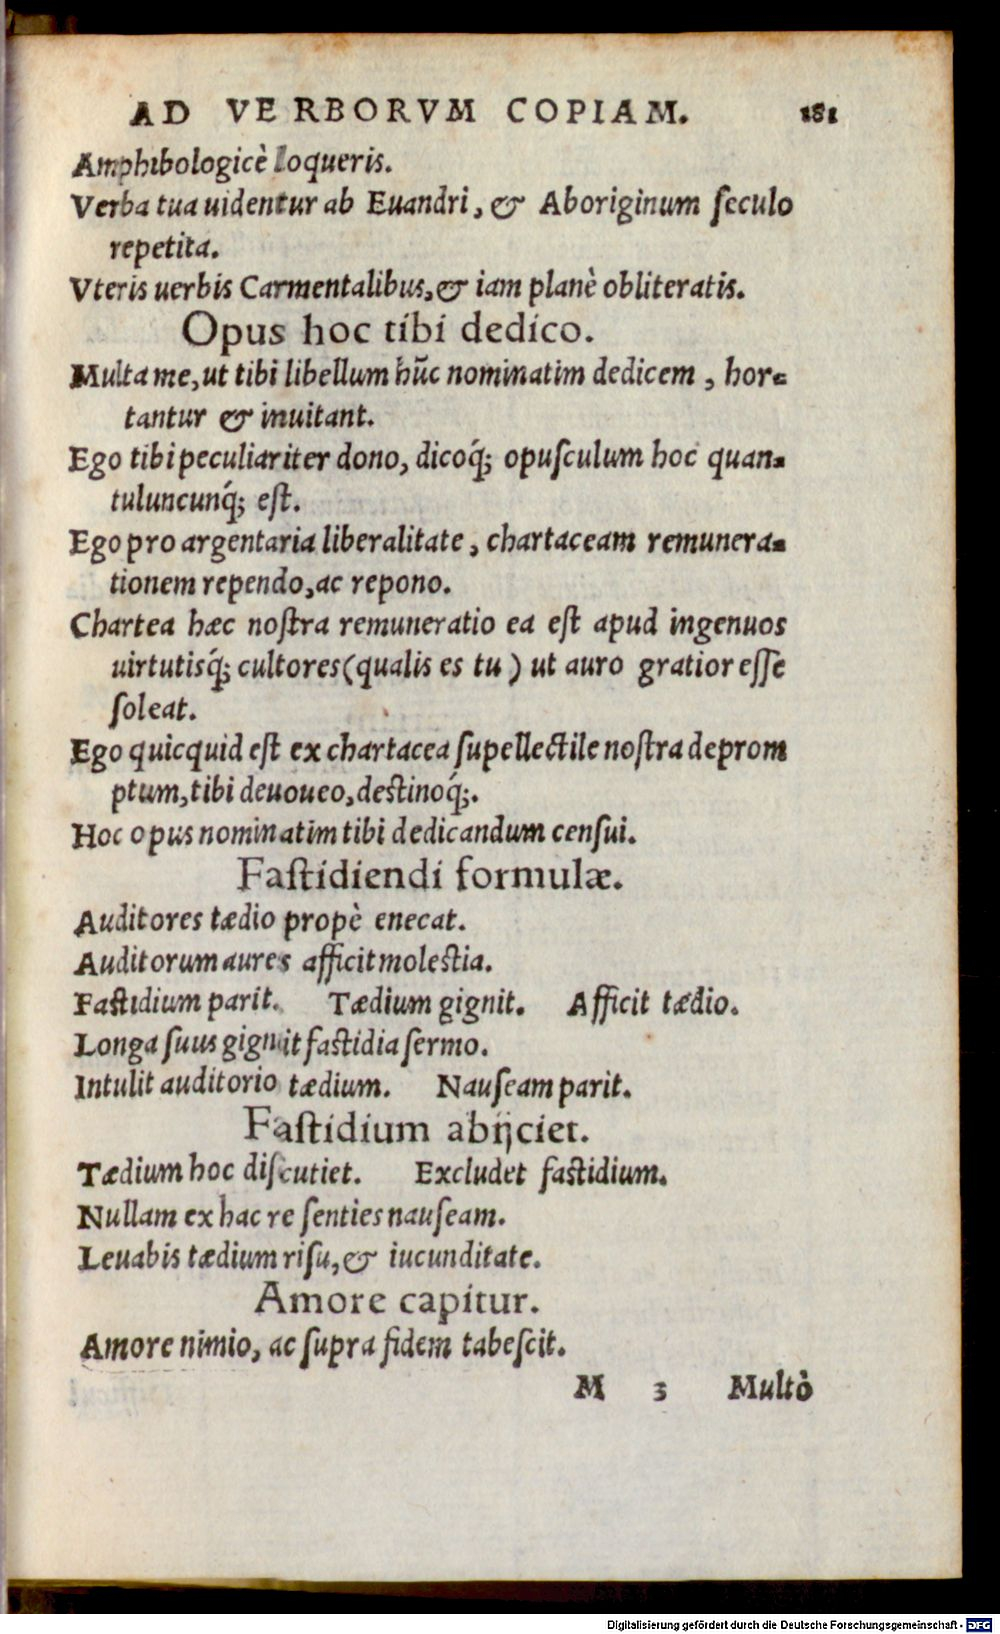 AD VERBORVM COPIAM. 181
Amphibologicè loqueris.
Verba tua uidentur ab Euandri, & Aboriginum seculo
repetita.
Vteris uerbis Carmentalibus, & iam planè obliteratis.
Opus hoc tibi dedico.
Multa me, ut tibi libellum hũc nominatim dedicem, hor-
tantur & inuitant.
Ego tibi peculiariter dono, dicoq́; opusculum hoc quan-
tuluncunq́; est.
Ego pro argentaria liberalitate, chartaceam remunera-
tionem rependo, ac repono.
Chartea hæc nostra remuneratio ea est apud ingenuos
uirtutisq́; cultores (qualis es tu) ut auro gratior esse
soleat.
Ego quicquid est ex chartacea supellectile nostra deprom
ptum, tibi deuoueo, destinoq́;.
Hoc opus nominatim tibi dedicandum censui.
Fastidiendi formulæ.
Auditores tædio propè enecat.
Auditorum aures afficit molestia.
Fastidium parit. Tædium gignit. Afficit tædio.
Longa suus gignit fastidia sermo.
Intulit auditorio tædium. Nauseam parit.
Fastidium abijciet.
Tædium hoc discutiet. Excludet fastidium.
Nullam ex hac re senties nauseam.
Leuabis tædium risu, & iucunditate.
Amore capitur.
Amore nimio, ac supra fidem tabescit.
M 3 Multò
Digitalisierung gefördert durch die Deutsche Forschungsgemeinschaft - DFG